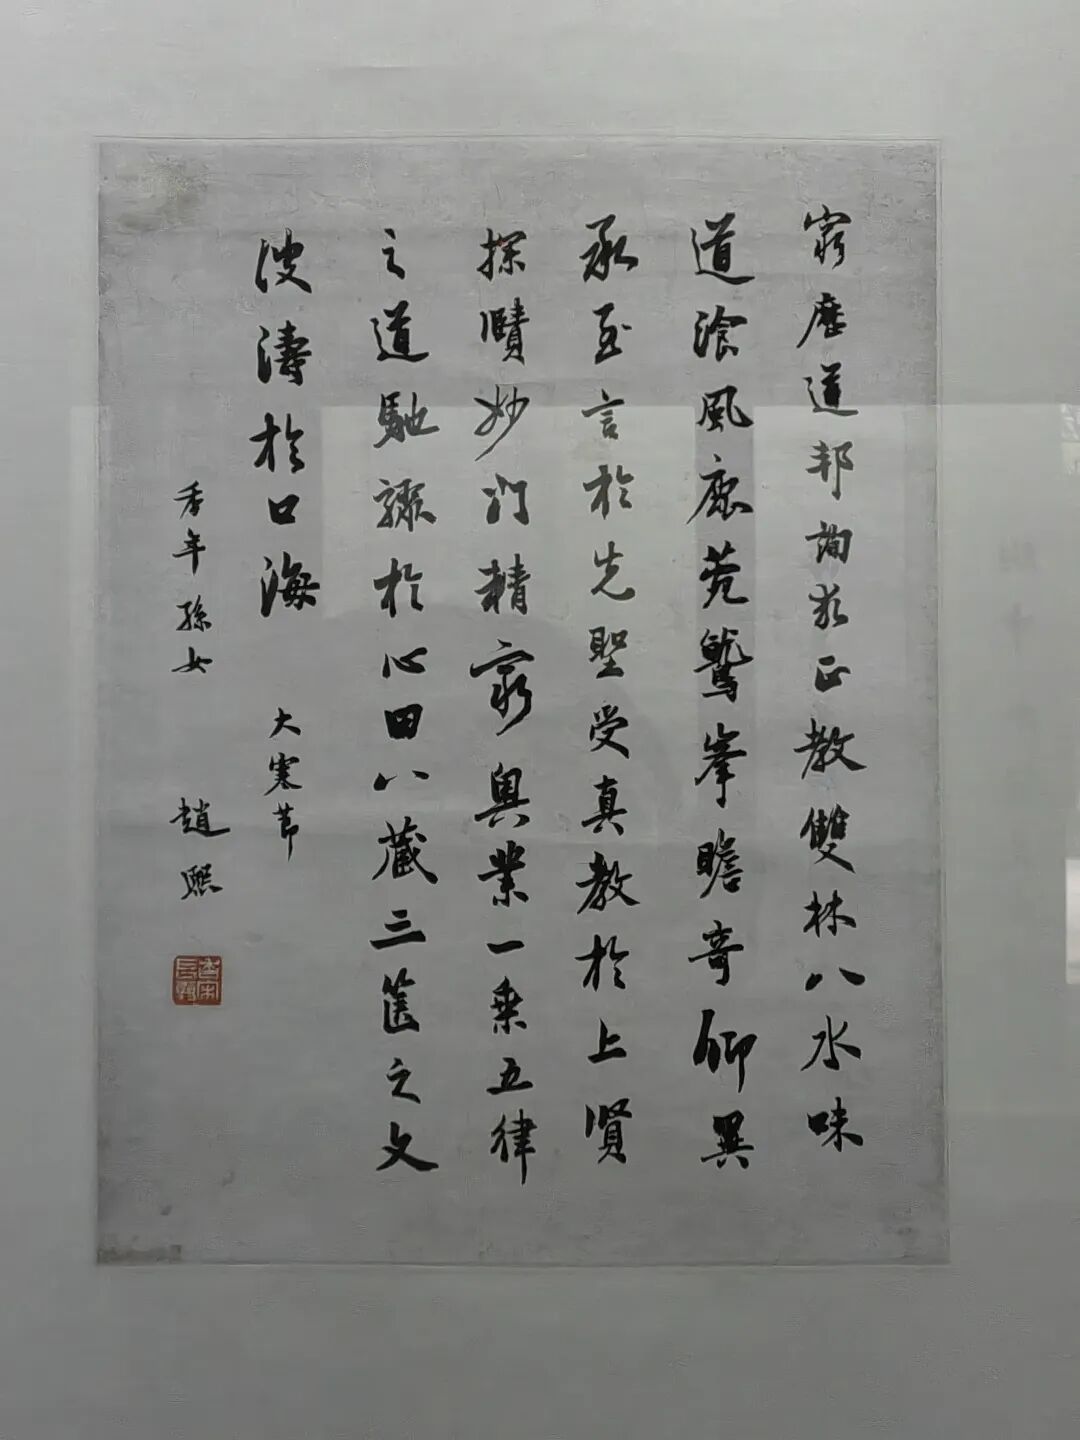 窮歷道邦詢求正教雙林八水味
道湌風鹿菀鷲峯瞻奇仰異
承至言於先聖受真教於上賢
探賾妙門精窮奧業一乘五律
之道馳驟於心田八藏三篋之文
波濤於口海
大寒節
季年孫女
趙熙